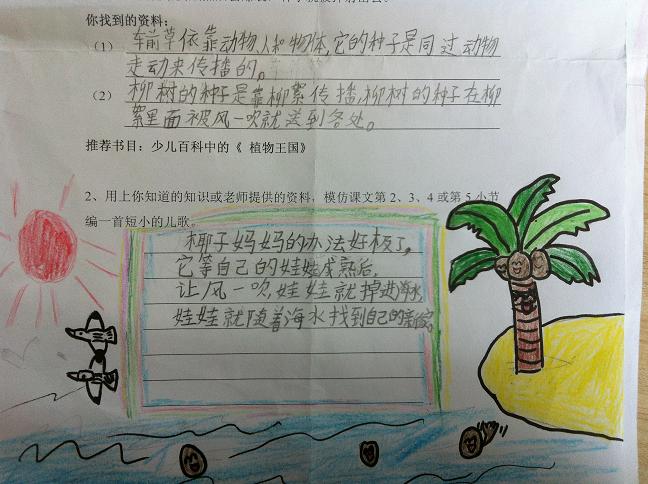 你找到的资料：
(1) 车前草依靠动物和物体,它的种子是同过动物
走动来传播的。
(2) 柳树的种子是靠柳絮传播,柳树的种子在柳
絮里面被风一吹就送到各处。
推荐书目：少儿百科中的《 植物王国》
2、用上你知道的知识或老师提供的资料，模仿课文第 2、3、4 或第 5 小节
编一首短小的儿歌。
椰子妈妈的办法好极了。
它等自己的娃娃成熟后
让风一吹,娃娃就掉进海
娃娃就随着海水找到自己的